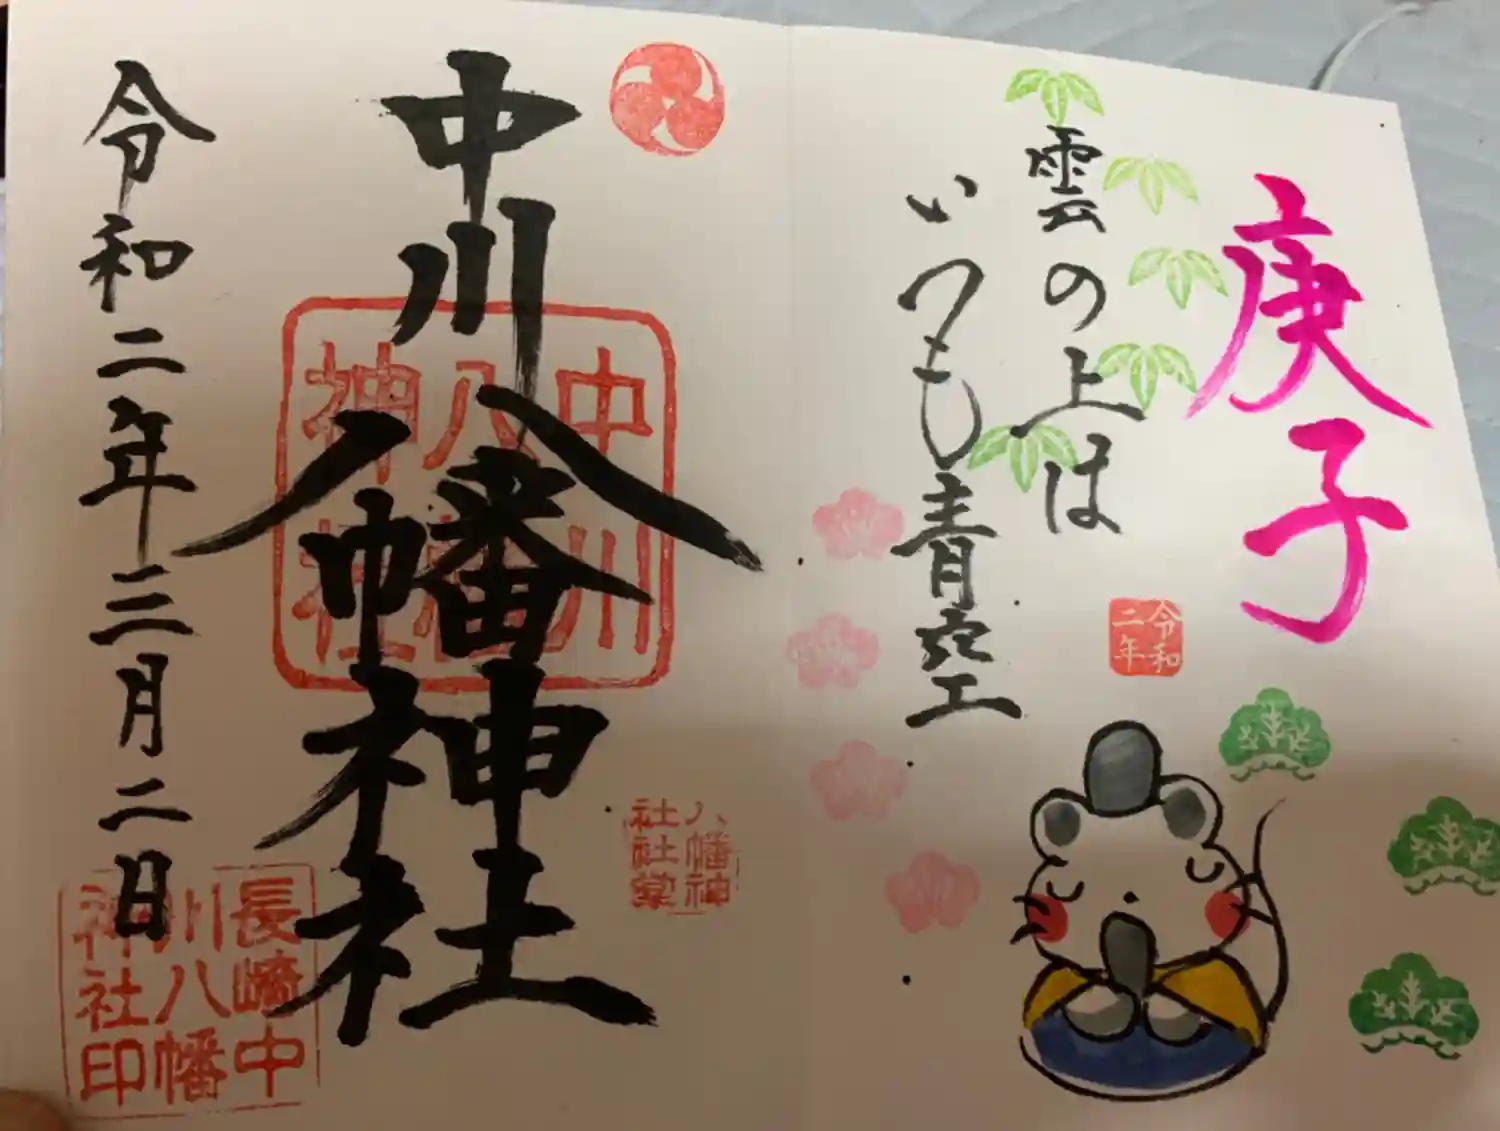 庚子
雲の上は
いつも青空
令和
二年
中川八幡神社
中川
八幡
神社
八幡神
社社掌
令和二年三月二日
長崎中
川八幡
神社印